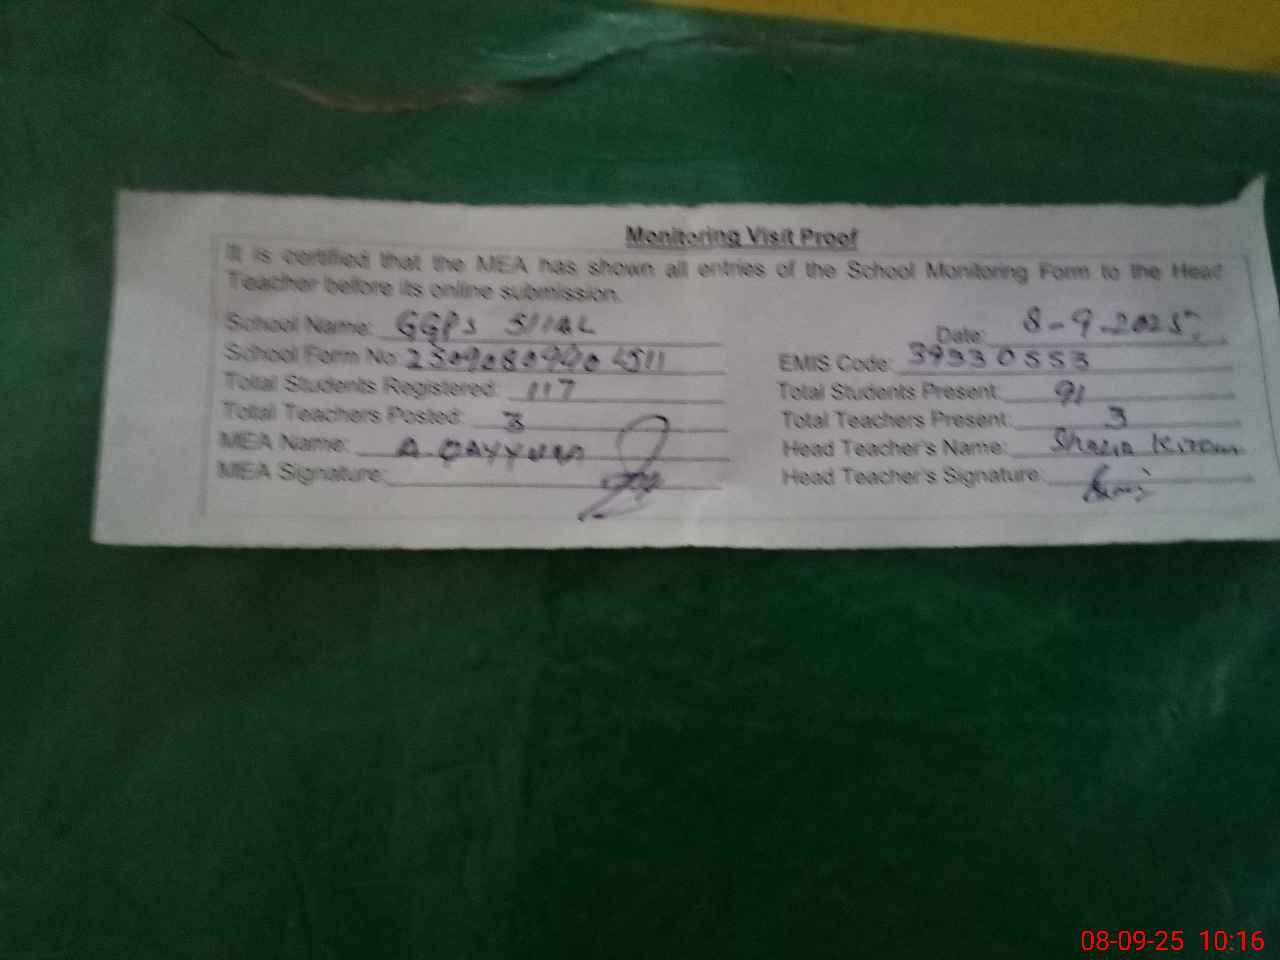 Monitoring Visit Proof
It is certified that the MEA has shown all entries of the School Monitoring Form to the Head
Teacher before its online submission.
School Name: GGPS SIIAL
Date: 8-9-2025
School Form No:
EMIS Code: 39330553
Total Students Registered: 117
Total Students Present: 91
Total Teachers Posted: 3
Total Teachers Present: 3
MEA Name: A. QAYYUM
Head Teacher's Name: Shazia Kiran
MEA Signature:
Head Teacher's Signature:
08-09-25 10:16